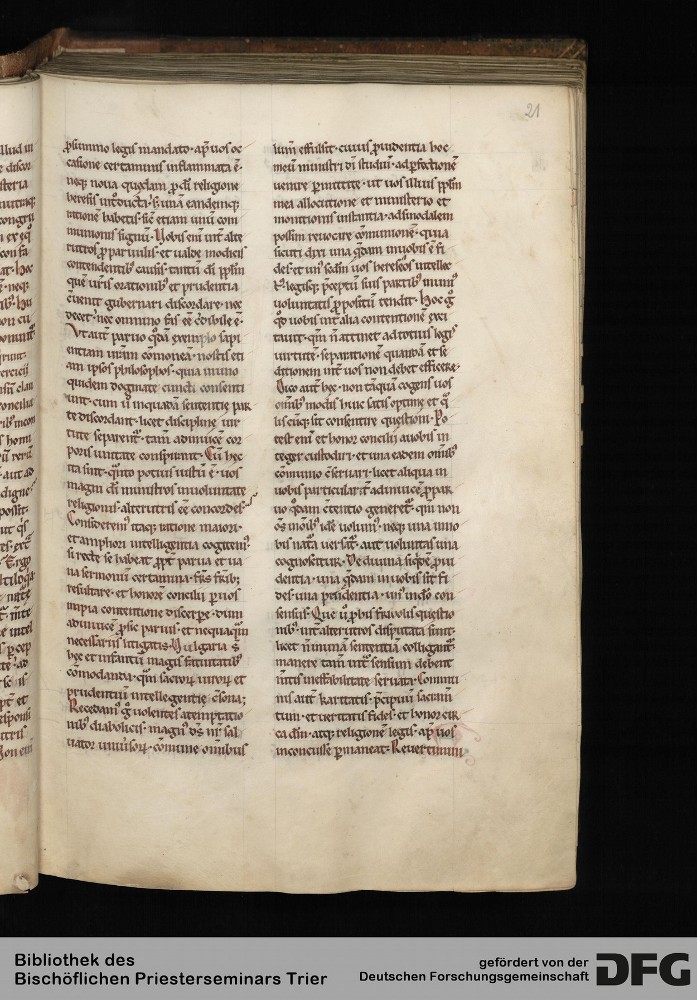 21
p̄simmo legis mandato· ap̄ uos oc
casione certaminis inflammata ē·
neq; noua quędam ꝓ dī religione
heresis int̄ducta· sꝫ una eandemq;
rationē habetis· sic̄ etiam unū com
munionis signū· Uobis enī int̄ alte
rutros ꝓ paruulis· et ualde modicis
contendentib; causis· tantū dī pp̄lm
quē ūris orationib; et prudentia
c̄uenit gubernari discordare· nec
decet· nec omnino fas eē c̄dibile ē·
Vt aut̄ paruo qͦdā exemplo sapi
entiam ūram comoneā· nostis eti
am ipsos philosophos· quia in uno
quidem dogmate cuncti consenti
unt· cum ū in quadā sententię par
te discordant· licet discipline uir
tute separent̄· tam̄ ad inuicē cor
poris unitate conspirant· Cū hec
ita sint· qͣnto potius iustū ē· uos
magni dī ministros in uoluntate
religionis· alterutris eē concordes·
Considerem; itaq; ratione maiori·
et ampliori intelligentia cogitem;
si recte se habeat ꝓpt̄ parua et ua
na sermonū certamina· fr̄s fr̄ib;
resultare· et honorē concilii ꝑ uos
impia contentione discerpe· dum
ad inuicē ꝓ sic paruis· et nequaqͣm
necessariis litigatis· Uulgaria s̄
hęc et infantiū magis fatuitatib;
cōmodanda· qͣm sacerꝫ uiroꝫ et
prudentiū intellegentię c̄sona;
Recedam; ḡ uolentes a temptatio
nib; diabolicis· magn; d̄s n̄r sal
uator uniuersoꝫ· cōmune omnibus
lum̄ effulsit· cuius ꝓuidentia hoc
meū ministri dī studiū· ad ꝑfectionē
uenire ꝑmittite· ut uos illius pp̄lm
mea allocutione et ministerio et
monitionis instantia· ad sinodalem
possim reuocare cōmunionē· quia
sicuti dixi una qͣdam in uobis ē fi
des· et un; secdm̄ uos hereseos intellec
t;· legisq; p̄ceptū suis partib; in uni;
uoluntatis ꝓpositū tendit· Hoc ḡ
qͦd uobis int̄ alia contentionē exci
tauit· qm̄ ñ attinet ad totius legis
uirtutē· separationē quandā et se
ditionem int̄ uos non debet efficere·
Dico aut̄ hęc· non tāquā cogens uos
omīb; modis huic satis optime et qͣ
liscūq; sit consentire questioni· Po
test enī et honor concilii a uobis in
teger custodiri· et una eadem om̄ib;
communio c̄seruari· licet aliqua in
uobis particularit̄ ad inuicē ꝓ par
uo qͣdam c̄tentio generet̄· qm̄ non
om̄s in om̄ib; idē uolum;· neq; una in no
bis nat̄a uersat̄· aut uoluntas una
cognoscitur· De diuina siqͥdē ꝓui
dentia· una qͣdam in uobis sit fi
des· una prudentia· un; in dō con
sensus· Que ū ꝓ h̄is friuolis questio
nib; int̄ alterutros disputata sunt·
licet ñ in unā sententiā colligant̄·
manere tam̄ int̄ sensum debent
mentis ineffabilitate seruata· Commu
nis aut̄ karitatis p̄cipuū sacram̄
tum· et ueritatis fides· et honor cir
ca dīn· atq; religionē legis· ap̄ uos
inconcusse ꝑmaneat· Reuertimini
Bibliothek des
Bischöflichen Priesterseminars Trier
gefördert von der
Deutschen Forschungsgemeinschaft
DFG